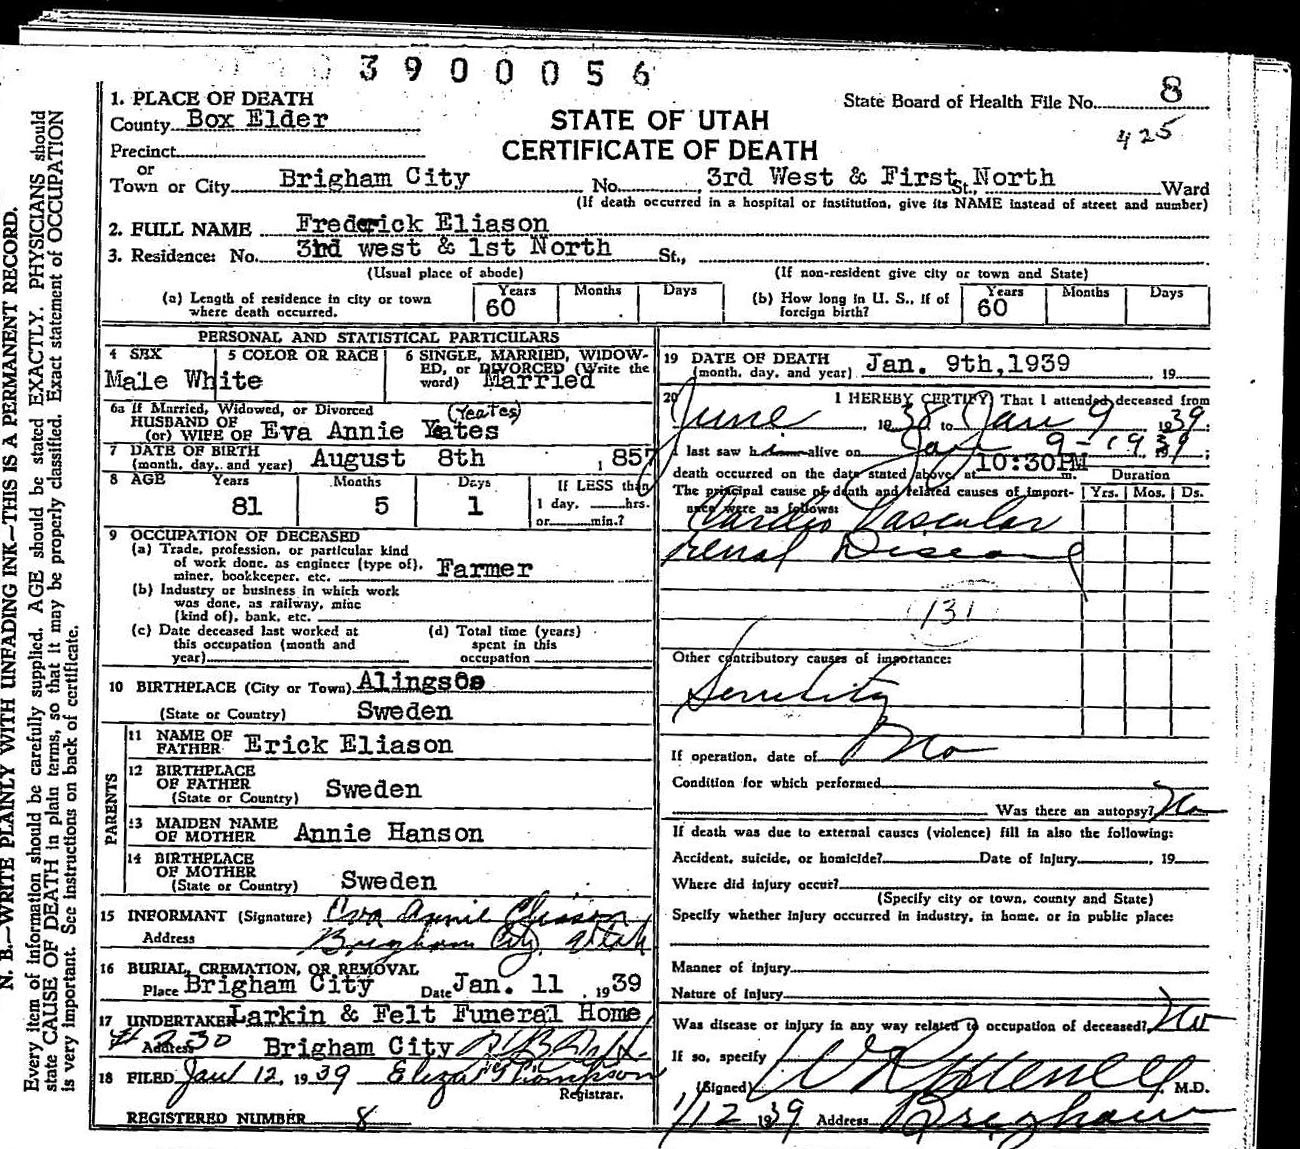 3900056
1. PLACE OF DEATH
County Box Elder
Precinct
or
Town or City Brigham City No. 3rd West & First St., North Ward
(If death occurred in a hospital or institution, give its NAME instead of street and number)
State Board of Health File No. 8
425
STATE OF UTAH
CERTIFICATE OF DEATH
2. FULL NAME Frederick Eliason
3. Residence: No. 3rd west & 1st North St.,
(Usual place of abode) (If non-resident give city or town and State)
(a) Length of residence in city or town where death occurred. Years 60 Months Days
(b) How long in U. S., if of foreign birth? Years 60 Months Days
PERSONAL AND STATISTICAL PARTICULARS
4 SEX Male
5 COLOR OR RACE White
6 SINGLE, MARRIED, WIDOWED, or DIVORCED (Write the word) Married
6a If Married, Widowed, or Divorced
HUSBAND OF
(or) WIFE OF Eva Annie Yates
(Yeates)
7 DATE OF BIRTH
(month, day, and year) August 8th 1857
8 AGE Years 81 Months 5 Days 1
If LESS than
1 day, hrs.
or min.?
9 OCCUPATION OF DECEASED
(a) Trade, profession, or particular kind
of work done, as engineer (type of),
miner, bookkeeper, etc. Farmer
(b) Industry or business in which work
was done, as railway, mine
(kind of), bank, etc.
(c) Date deceased last worked at
this occupation (month and
year)
(d) Total time (years)
spent in this
occupation
10 BIRTHPLACE (City or Town) Alingsos
(State or Country) Sweden
PARENTS
11 NAME OF FATHER Erick Eliason
12 BIRTHPLACE OF FATHER
(State or Country) Sweden
13 MAIDEN NAME OF MOTHER Annie Hanson
14 BIRTHPLACE OF MOTHER
(State or Country) Sweden
15 INFORMANT (Signature) Eva Annie Eliason
Address Brigham City, Utah
16 BURIAL, CREMATION, OR REMOVAL
Place Brigham City Date Jan. 11, 1939
17 UNDERTAKER Larkin & Felt Funeral Home
Address Brigham City
18 FILED Jan 12, 1939 Thompson
Registrar.
REGISTERED NUMBER 8
19 DATE OF DEATH
(month, day, and year) Jan. 9th, 1939, 19
20 I HEREBY CERTIFY, That I attended deceased from
June, 1938 to Jan 9 1939.
I last saw him alive on Jan 9-1939;
death occurred on the date stated above, at 10:30PM m.
Duration
Yrs. Mos. Ds.
The principal cause of death and related causes of importance were as follows:
Cardio Vascular
Renal Disease
131
Other contributory causes of importance:
Senility
If operation, date of No
Condition for which performed
Was there an autopsy? No
If death was due to external causes (violence) fill in also the following:
Accident, suicide, or homicide? Date of injury , 19
Where did injury occur?
(Specify city or town, county and State)
Specify whether injury occurred in industry, in home, or in public place:
Manner of injury
Nature of Injury
Was disease or injury in any way related to occupation of deceased? No
If so, specify
(Signed) M.D.
1/12 1939 Address Brigham
N. B.—WRITE PLAINLY WITH UNFADING INK—THIS IS A PERMANENT RECORD.
Every item of information should be carefully supplied. AGE should be stated EXACTLY. PHYSICIANS should
state CAUSE OF DEATH in plain terms, so that it may be properly classified. Exact statement of OCCUPATION
is very important. See instructions on back of certificate.